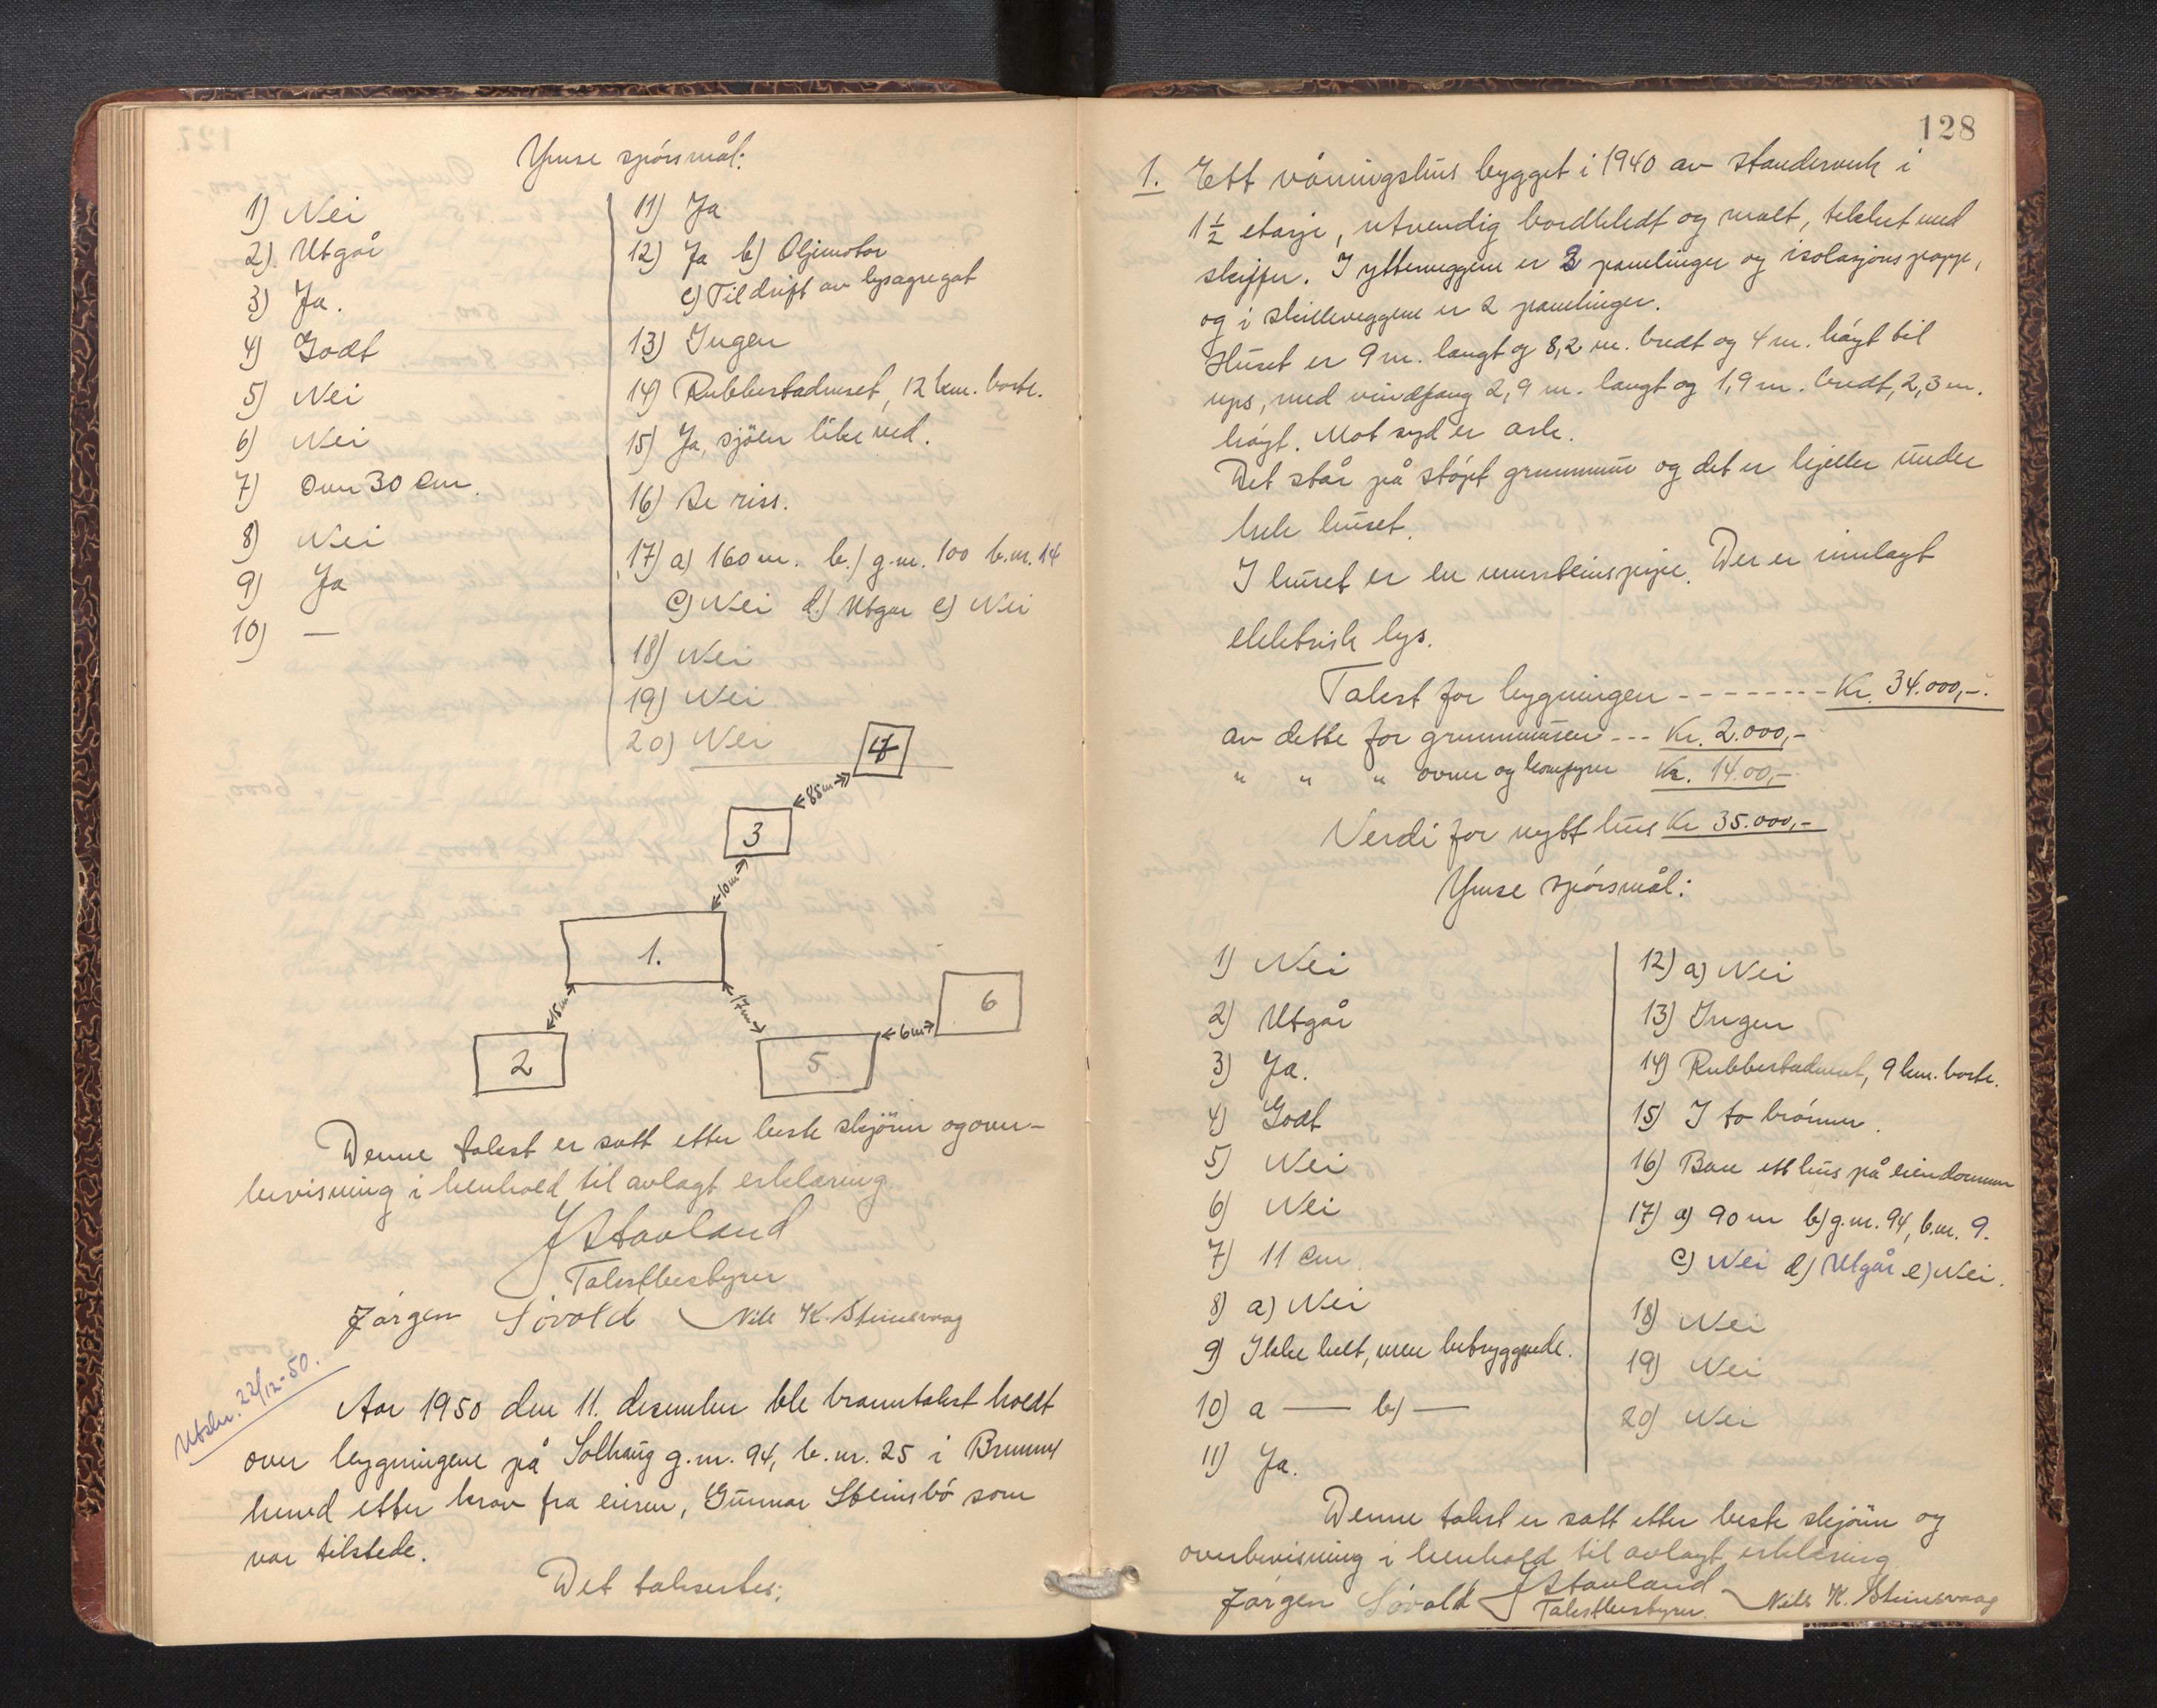 Ymse spörsmål:
1) Nei
2) Utgår
3) Ja.
4) Godt
5) Nei
6) Nei
7) Over 30 cm.
8) Nei
9) Ja
10) —
11) Ja
12) Ja b) Oljemotor
c) Til drift av lysagregat
13) Ingen
14) Rubbestadneset, 12 km. borte.
15) Ja, sjöen like ved.
16) Se riss.
17) a) 160 m. b.) g.nr. 100 b.nr. 14
c) Nei d.) Utgår e) Nei
18) Nei
19) Nei
20) Nei
4
←85m→
3
←10m→
1.
←15m→
←17m→
2
5
←6m→
6
Denne takst er satt etter beste skjönn og over-
bevisning i henhold til avlagt erklæring
J Stavland
Takstbestyrer
Jørgen Søvold Nils K. Steinsvaag
Utskr. 22/12-50.
Aar 1950 den 11. desember ble branntakst holdt
over bygningene på Solhaug g.nr. 94, b.nr. 25 i
herred etter krav fra eieren, Gunnar Steinsbö som
var tilstede.
Det takseres:
128
1. Ett våningshus bygget i 1940 av standerverk i
1½ etasje, utvendig bordkledt og malt, tekket med
skiffer. I ytterveggene er 3 panelinger og isolasjonspapp,
og i skilleveggene er 2 panelinger.
Huset er 9 m. langt og 8,2 m. bredt og 4 m. høyt til
ups, med vindfang 2,9 m. langt og 1,9 m. bredt, 2,3 m.
høyt. Mot syd er ark.
Det står på støpt grunnmur og det er kjeller under
hele huset.
I huset er en mursteinspipe. Der er innlagt
elektrisk lys.
Takst for bygningen - - - - - - - - Kr. 34.000,-.
av dette for grunnmuren - - - Kr. 2.000,-
" " " ovner og komfyrer Kr. 14.00,-
Verdi for nytt hus Kr 35.000,-
Ymse spörsmål:
1) Nei
2) Utgår
3) Ja.
4) Godt
5) Nei
6) Nei
7) 11 cm.
8) a) Nei
9) Ikke helt, men betryggende.
10) a — b) —
11) Ja.
12) a) Nei
13) Ingen
14) Rubbestadneset, 9 km. borte.
15) I to brønner.
16) Bare ett hus på eiendommen
17) a) 90 m b) g.nr. 94, b.nr. 9.
c) Nei d) Utgår e) Nei.
18) Nei
19) Nei
20) Nei
Denne takst er satt etter beste skjönn og
overbevisning i henhold til avlagt erklæring
Jørgen Søvold J Stavland Nils K. Steinsvaag
Takstbestyrer